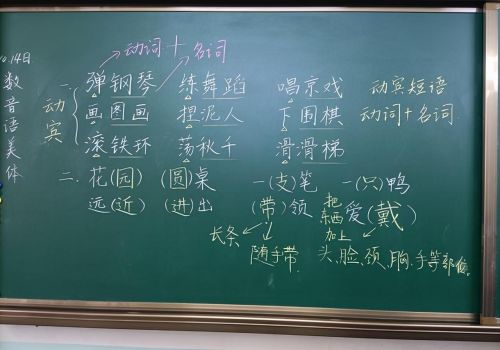 10.14日
数音语美体
动词+名词
一、弹钢琴 练舞蹈 唱京戏 动宾短语
动宾 画图画 捏泥人 下围棋 动词+名词
滚铁环 荡秋千 滑滑梯
二、花(园) (圆)桌 一(支)笔 一(只)鸭
远(近) (进)出 (带)领 爱(戴)
把东西加上
长条 随手带 头、脸、颈、胸、手等部位。